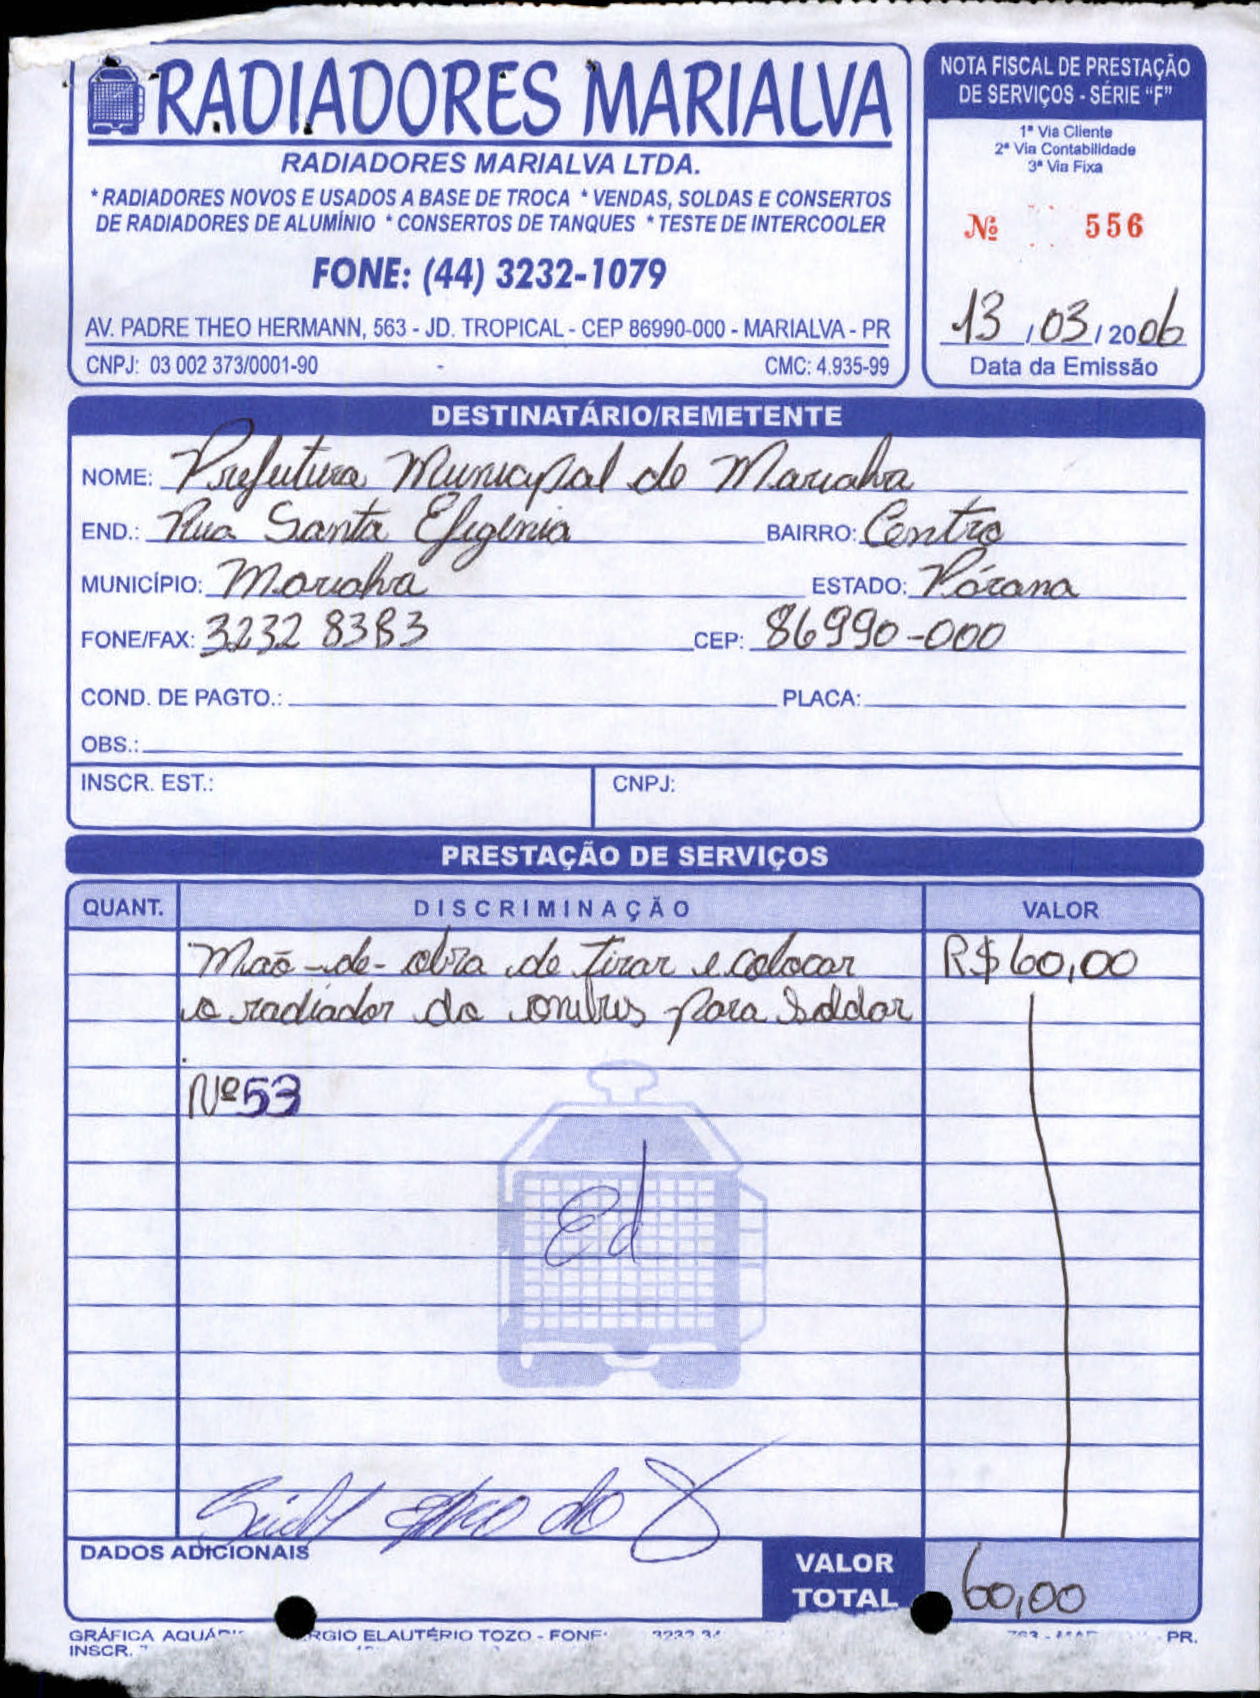 RADIADORES MARIALVA
RADIADORES MARIALVA LTDA.
* RADIADORES NOVOS E USADOS A BASE DE TROCA * VENDAS, SOLDAS E CONSERTOS
DE RADIADORES DE ALUMÍNIO * CONSERTOS DE TANQUES * TESTE DE INTERCOOLER
FONE: (44) 3232-1079
AV. PADRE THEO HERMANN, 563 - JD. TROPICAL - CEP 86990-000 - MARIALVA - PR
CNPJ: 03 002 373/0001-90 CMC: 4.935-99
NOTA FISCAL DE PRESTAÇÃO
DE SERVIÇOS - SÉRIE "F"
1ª Via Cliente
2ª Via Contabilidade
3ª Via Fixa
Nº 556
13/03/2006
Data da Emissão
DESTINATÁRIO/REMETENTE
NOME: Prefeitura Municipal de Marialva
END.: Rua Santa Efigênia BAIRRO: Centro
MUNICÍPIO: Marialva ESTADO: Párana
FONE/FAX: 3232 8383 CEP: 86990-000
COND. DE PAGTO.: PLACA:
OBS.:
INSCR. EST.: CNPJ:
PRESTAÇÃO DE SERVIÇOS
QUANT. DISCRIMINAÇÃO VALOR
Mão-de-obra de tirar e colocar R$60,00
o radiador do onibus para soldar
Nº53
Ed
DADOS ADICIONAIS
VALOR
TOTAL 60,00
GRÁFICA ELAUTÉRIO TOZO - PR.
INSCR.